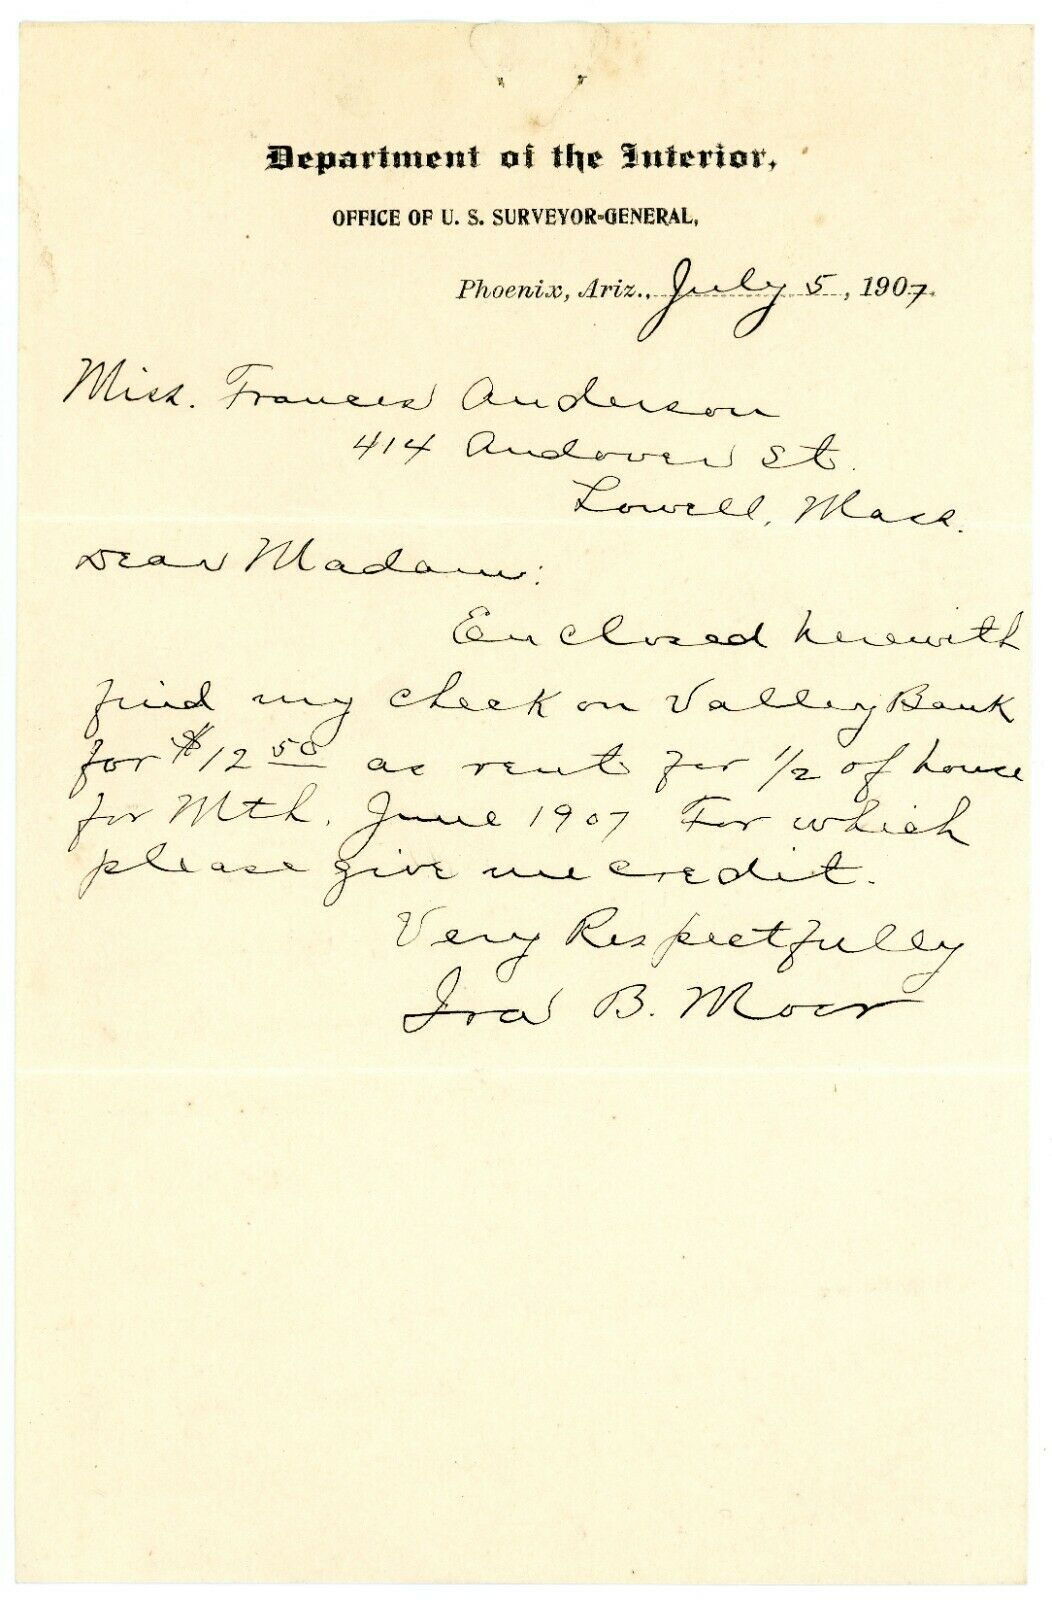 Department of the Interior,
OFFICE OF U. S. SURVEYOR-GENERAL,
Phoenix, Ariz., July 5, 1907.
Miss. Frances Anderson
414 Andover St.
Lowell, Mass.
Dear Madam:
Enclosed herewith
find my check on Valley Bank
for $12 50 as rent for 1/2 of house
for Mth. June 1907 For which
please give me credit.
Very Respectfully
Ira B.